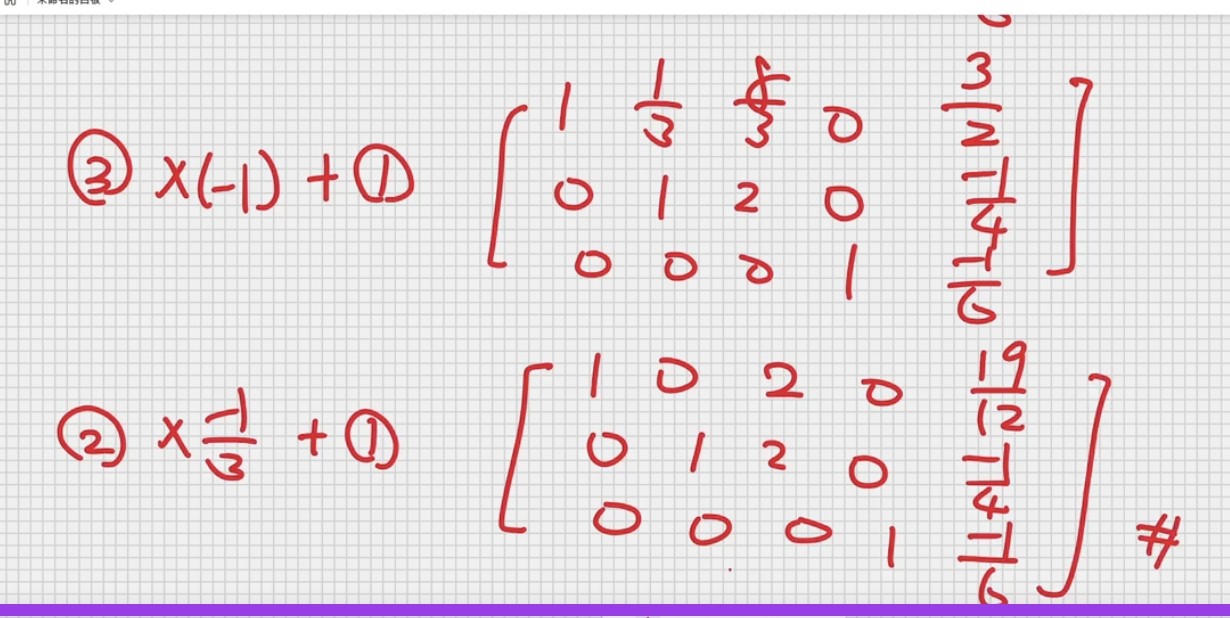 ③ ×(-1) + ① [ 1 1/3 8/3 0 3/2
0 1 2 0 -1/4
0 0 0 1 -1/6 ]
② × -1/3 + ① [ 1 0 2 0 19/12
0 1 2 0 -1/4
0 0 0 1 -1/6 ] #